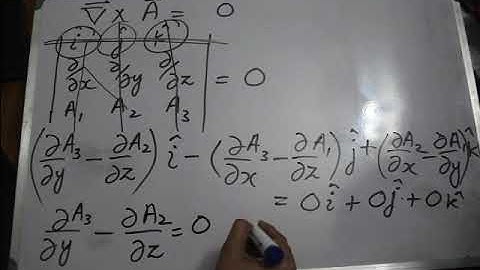 ∇ × A = 0
| i j k |
| ∂/∂x ∂/∂y ∂/∂z | = 0
| A₁ A₂ A₃ |
(∂A₃/∂y − ∂A₂/∂z) î − (∂A₃/∂x − ∂A₁/∂z) ĵ + (∂A₂/∂x − ∂A₁/∂y) k̂
= 0î + 0ĵ + 0k̂
∂A₃/∂y − ∂A₂/∂z = 0